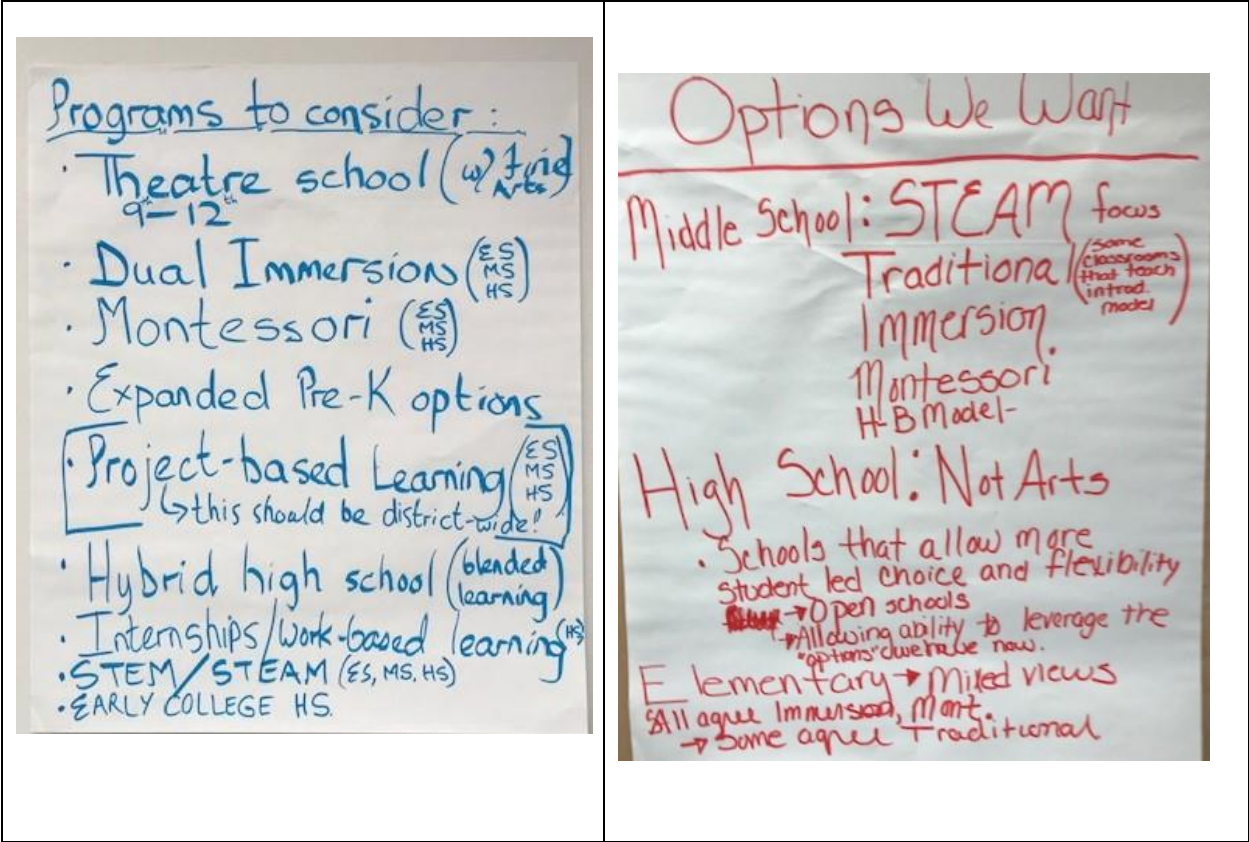 Programs to consider :
· Theatre school (w/ Fine Arts)
9th-12th
· Dual Immersion (ES MS HS)
· Montessori (ES MS HS)
· Expanded Pre-K options
· Project-based Learning (ES MS HS)
↳ this should be district-wide!
· Hybrid high school (blended learning)
· Internships/Work-based learning (HS)
· STEM/STEAM (ES, MS, HS)
· EARLY COLLEGE HS.
Options We Want
Middle School: STEAM focus
Traditional (some classrooms that teach in trad. model)
Immersion
Montessori
H-B Model-
High School: Not Arts
· Schools that allow more
student led choice and flexibility
→ Open schools
→ Allowing ability to leverage the
"options" we have now.
Elementary → Mixed views
All agree Immersion, Mont.
→ Some agree Traditional